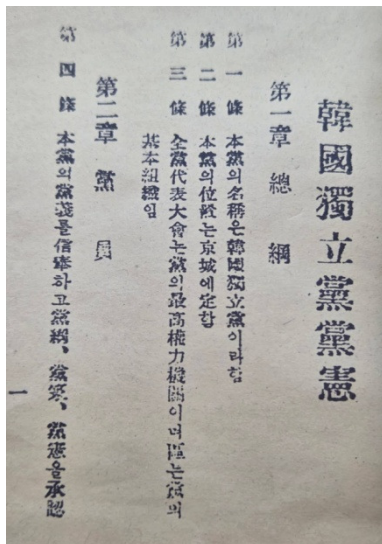 韓國獨立黨黨憲
第一章 總綱
第一條 本黨의名稱은韓國獨立黨이라함
第二條 本黨의位置는京城에定함
第三條 全黨代表大會는黨의最高權力機關이며區는黨의
基本組織임
第二章 黨員
第四條 本黨의黨義를信奉하고黨綱、黨策、黨憲을承認
一